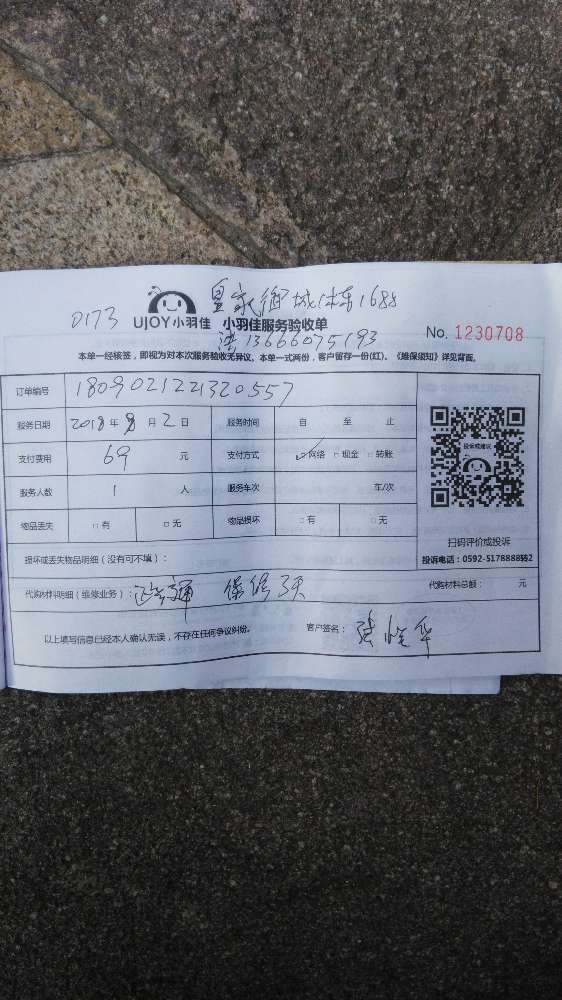 皇家御城
0173 UJOY小羽佳 小羽佳服务验收单
13666075193 No. 1230708
本单一经核签，即视为对本次服务验收无异议。本单一式两份，客户留存一份(红)。《维保须知》详见背面。
订单编号 1809021221320557
服务日期 2018年9月2日 服务时间 自 至 止
投诉或建议
支付费用 69 元 支付方式 ☑网络 □现金 □转账
服务人数 1 人 服务车次 车/次
物品丢失 □有 □无 物品损坏 □有 □无
扫码评价或投诉
投诉电话：0592-5178888转2
损坏或丢失物品明细（没有可不填）：
代购材料明细（维修业务）： 保修3天 代购材料总额： 元
以上填写信息已经本人确认无误，不存在任何争议纠纷。 客户签名：